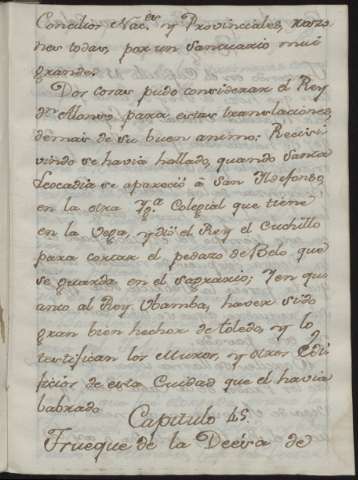 Concilios Nac.es y Provinciales, razo
nas todas, por un Sanctuario mui
grande.
Dos cosas pudo considerar el Rey
dn Alonso para estas translaciones,
demas de su buen animo: Recisi
vindo se havia hallado, quando Santa
Leocadia se apareció á San Ildefonso,
en la otra Yg.a Colegial que tiene
en la Vega, y dió el Rey el Cuchillo
para cortar el pedazo de Belo que
se guarda en el Sagrario; Y en qu
anto al Rey Ubamba, haver sido
gran bien hechor de toledo, y lo
testifican los Muros, y otros Edi
ficios de esta Ciudad que el havia
labrado
Capitulo 45.
Trueque de la Decesa de